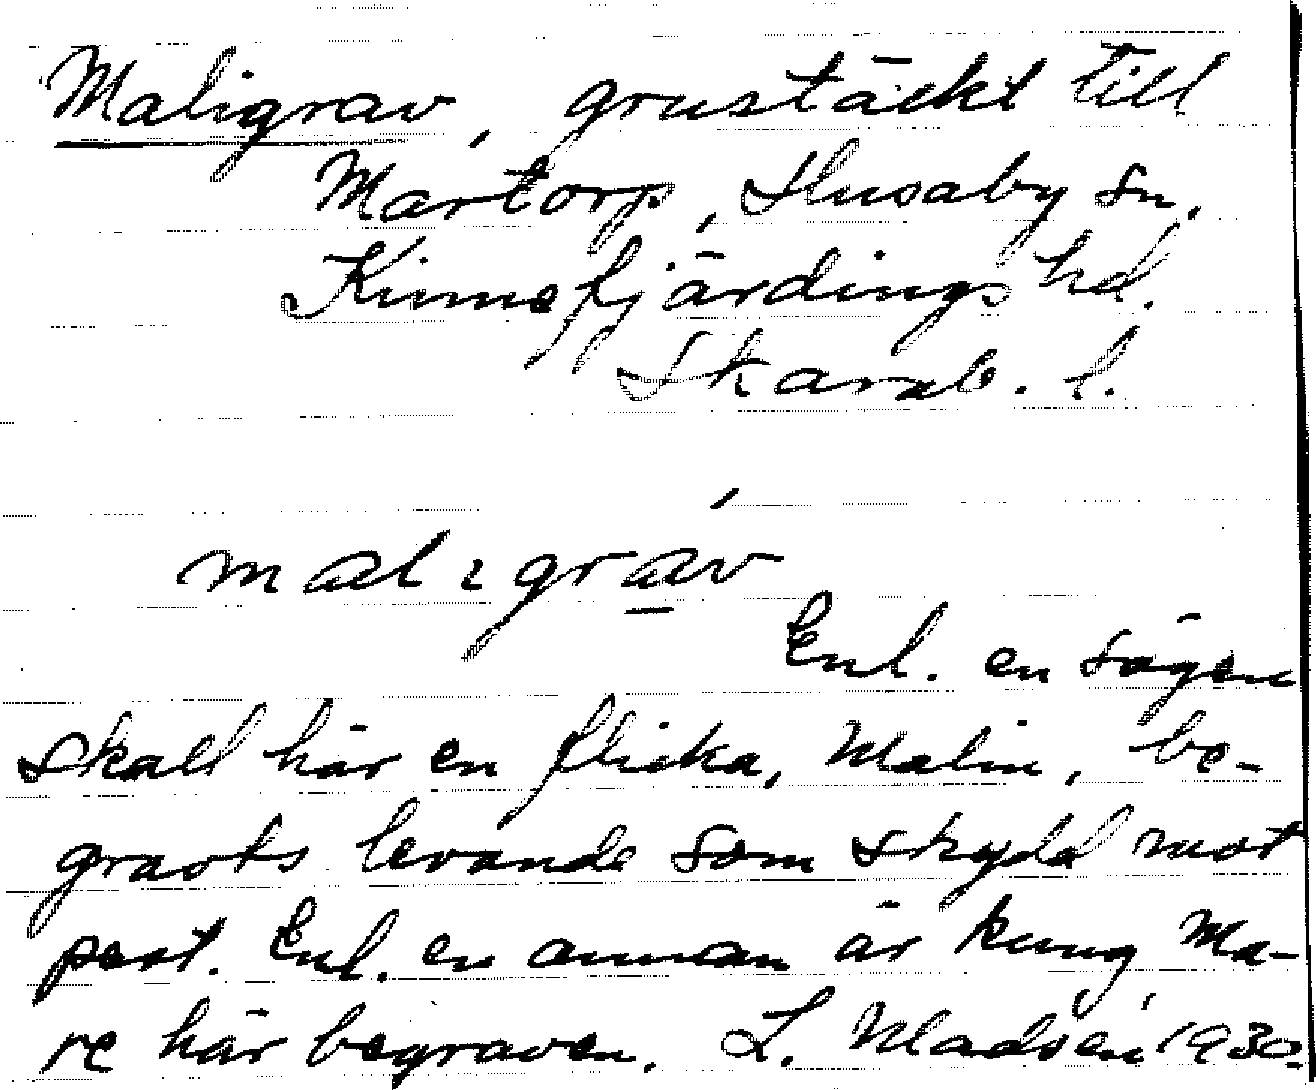 Maligrav, grustäckt till
Martorp, Husaby sn,
Kinnefjärdings hd.
Skarab. l.
malıgrav
Enl. en sägen
skall här en flicka, Malin, be-
gravts levande som skydd mot
pest. Enl. en annan är kung Ma-
re här begraven. L. Modéen 1930.